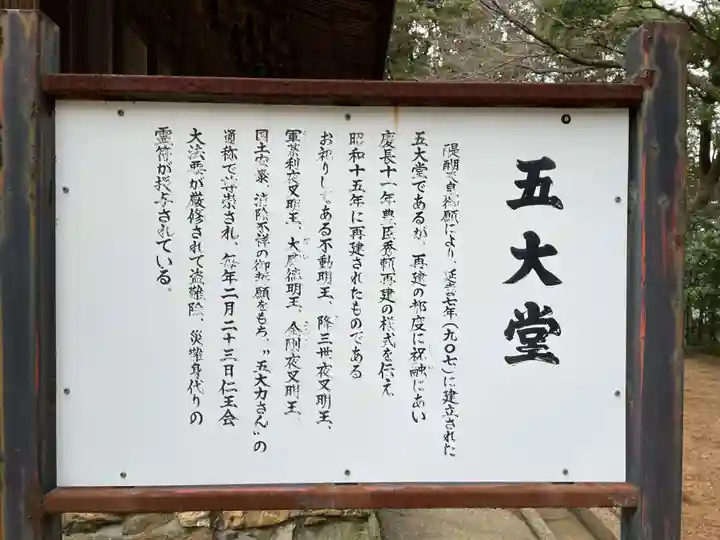 五大堂
醍醐天皇御願により、延喜七年(九〇七)に建立された
五大堂であるが、再建の都度に祝融にあい
慶長十一年豊臣秀頼再建の様式を伝え、
昭和十五年に再建されたものである
お祀りしてある不動明王、降三世夜叉明王、
軍荼利夜叉明王、大威徳明王、金剛夜叉明王、
国土安泰、消除不祥の御誓願をもち、"五大力さん"の
通称で尊崇され、毎年二月二十三日仁王会
大法要が厳修されて盗難除、災難身代りの
霊符が授与されている。